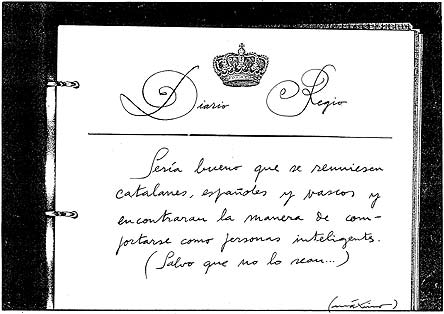 Diario Regio
Sería bueno que se reuniesen
catalanes, españoles y vascos y
encontraran la manera de com-
portarse como personas inteligentes.
(Salvo que no lo sean...)
(máximo)